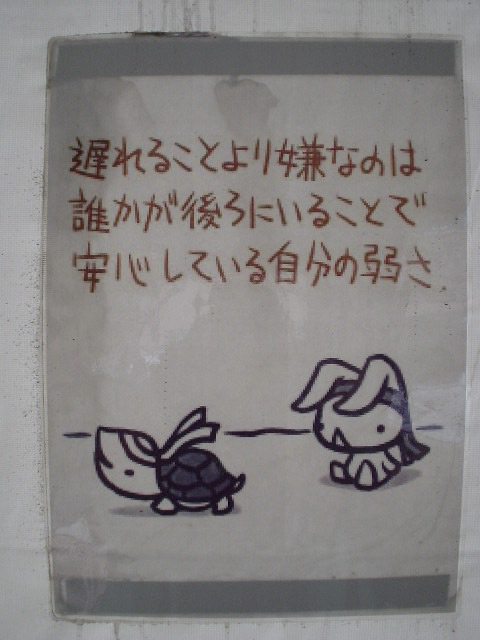 遅れることより嫌なのは
誰かが後ろにいることで
安心している自分の弱さ